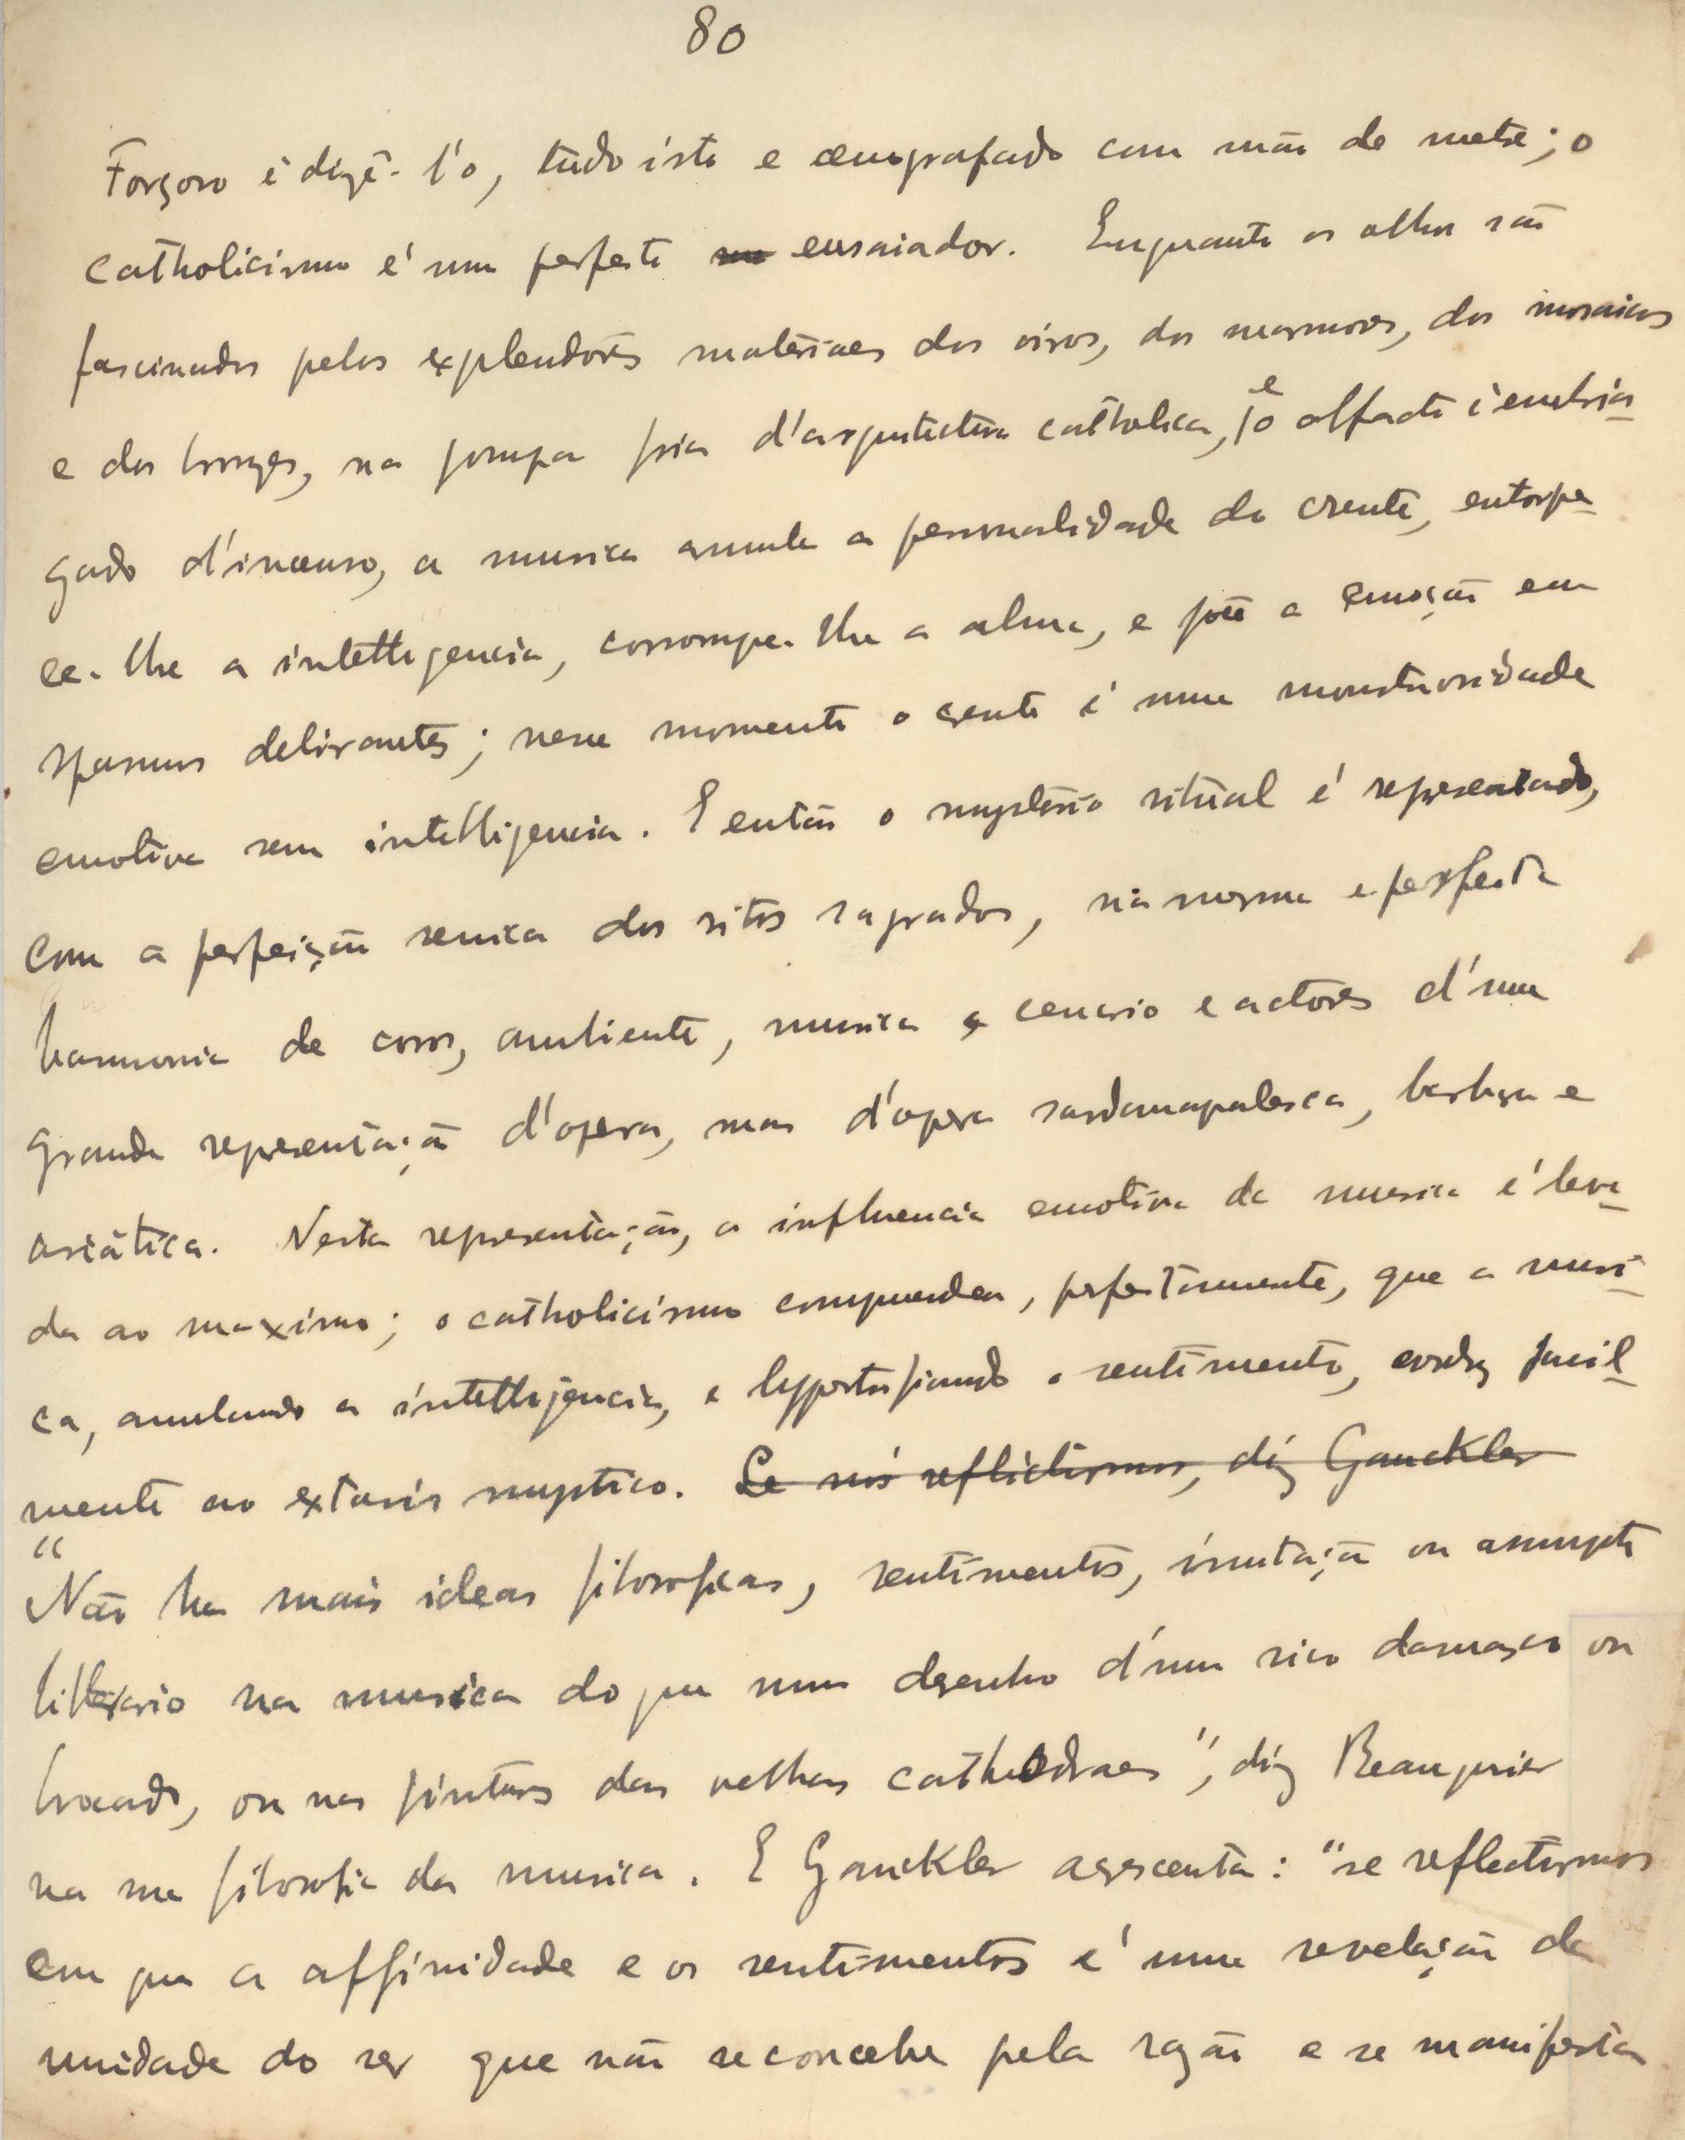 80
Forçoso é dizê-l'o, tudo isto e cenografado com mão de metre; o
catholicismo é um perfeito ensaiador. Enquanto os olhos são
fascinados pelos explendores materiaes dos oiros, dos marmores, dos mosaicos
e dos bronzes, na pompa fria d'arquitectura catholica, e o olfacto é embria-
gado d'incenso, a musica anula a personalidade do crente, entorpe-
ce-lhe a intelligencia, corrompe-lhe a alma, e põe a emoção em
spasmos delirantes; nesse momento o crente é uma monstruosidade
emotiva sem intelligencia. E então o mysterio ritual é representado,
com a perfeição scenica dos ritos sagrados, na morna e perfeita
harmonia de cores, ambiente, musica e cenario e actores d'uma
grande representação d'opera, mas d'opera sardanapalesca, barbara e
asiática. Nesta representação, a influencia emotiva da musica é leva-
da ao maximo; o catholicismo comprendeu, perfeitamente, que a musi-
ca, anulando a intelligencia, e hypertrofiando o sentimento, conduz facil-
mente ao extasis mystico. Se nós reflictirmos, diz Gauckler
"Não ha mais ideas filosoficas, sentimentos, imitação ou assumpto
litterario na musica do que num desenho d'um rico damasco ou
brocado, ou nas pinturas das velhas cathedraes", diz Beauquier
na sua filosofia da musica. E Gauckler acrescenta: "se reflectirmos
em que a affinidade e os sentimentos é uma revelação da
unidade do ser que não se concebe pela razão e se manifesta